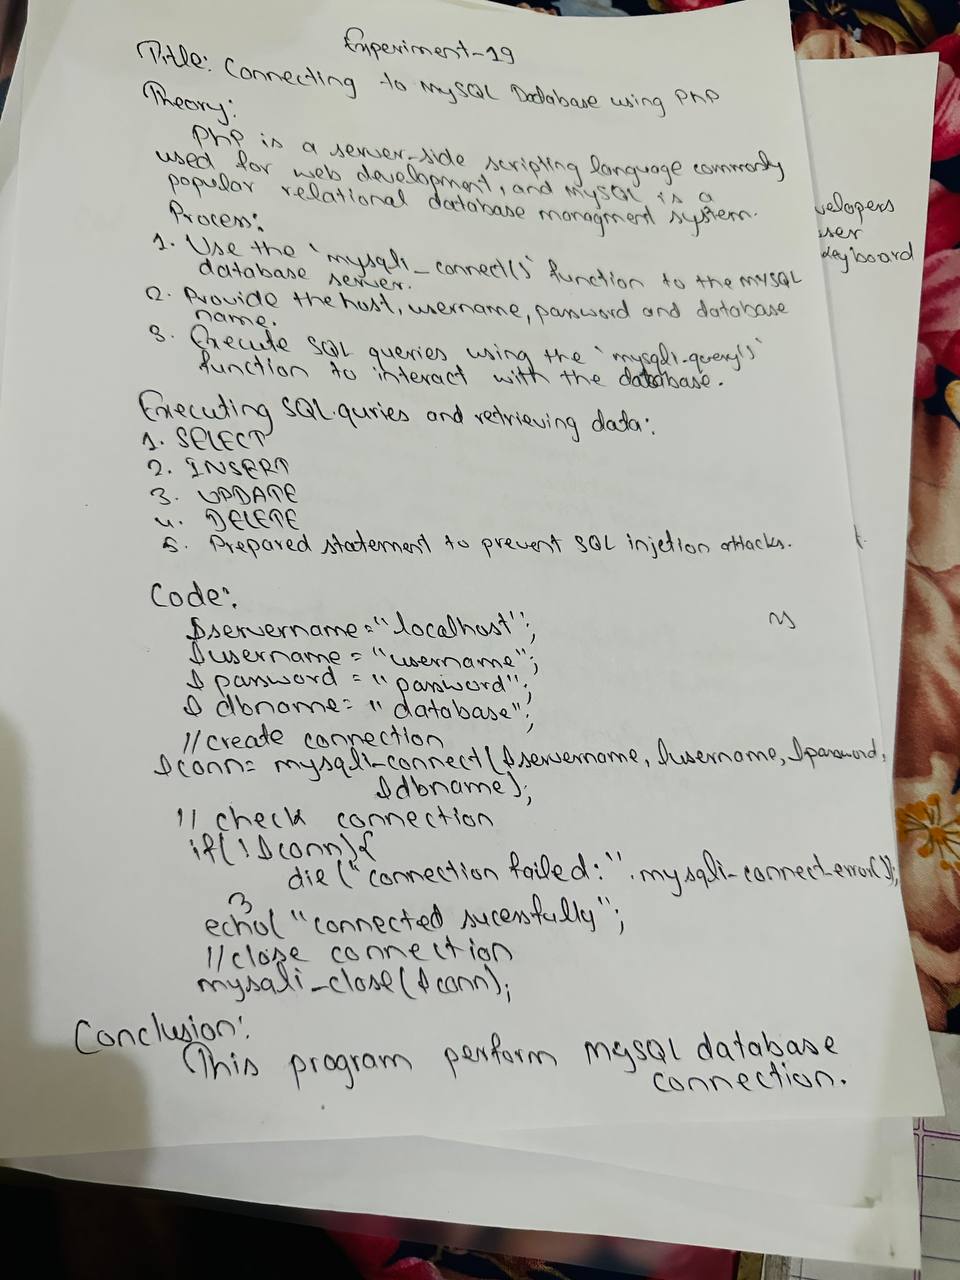 Experiment-19
Title: Connecting to MySQL Database using PHP
Theory:
PHP is a server-side scripting language commonly
used for web development, and MySQL is a
popular relational database managment system.
Process:
1. Use the `mysqli_connect()` function to the MYSQL
database server.
2. Provide the host, username, password and database
name.
3. Execute SQL queries using the `mysqli-query()`
function to interact with the database.
Executing SQL quries and retrieving data:
1. SELECT
2. INSERT
3. UPDATE
4. DELETE
5. Prepared statement to prevent SQL injetion attacks.
Code:
$servername="localhost";
$username = "username";
$ password = "password";
$ dbname= "database";
//create connection
$conn= mysqli-connect($servername, $username, $password,
$dbname);
// check connection
if(!$conn){
die("connection failed:".mysqli-connect-error());
}
echo( "connected sucessfully";
//close connection
mysqli_close($conn);
Conclusion:
This program perform MySQL database
connection.
velopers
user
keyboard